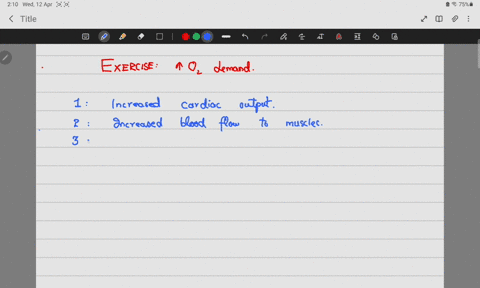 2:10 Wed, 12 Apr
75%
Title
EXERCISE: ↑ O₂ demand.
1: Increased cardiac output.
2: Increased blood flow to muscles.
3: